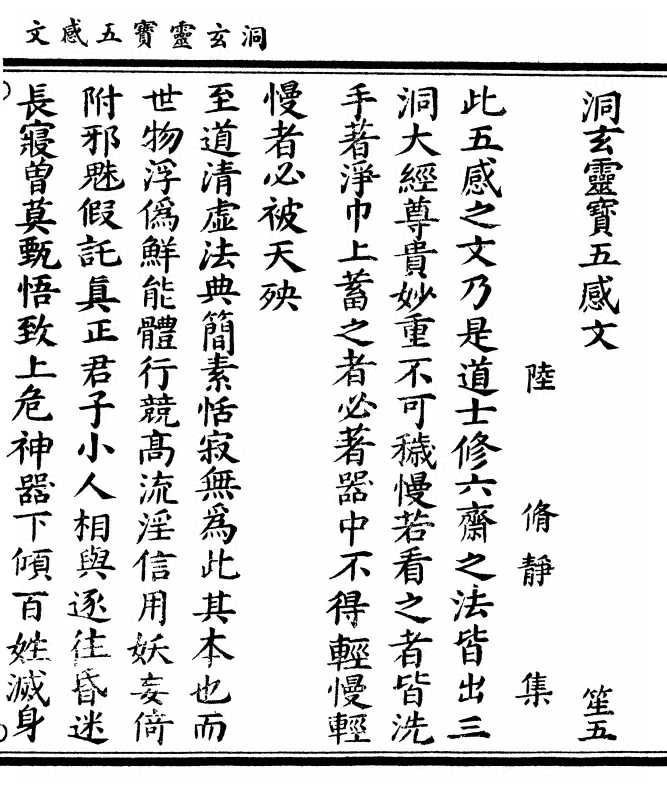 洞玄靈寶五感文
洞玄靈寶五感文 笙五
陸 脩靜 集
此五感之文乃是道士修六齋之法皆出三
洞大經尊貴妙重不可穢慢若看之者皆洗
手著淨巾上蓄之者必著器中不得輕慢輕
慢者必被天殃
至道清虛法典簡素恬寂無為此其本也而
世物浮偽鮮能體行競高流淫信用妖妄倚
附邪魅假託真正君子小人相與逐往昏迷
長寢曾莫甄悟致上危神器下傾百姓滅身